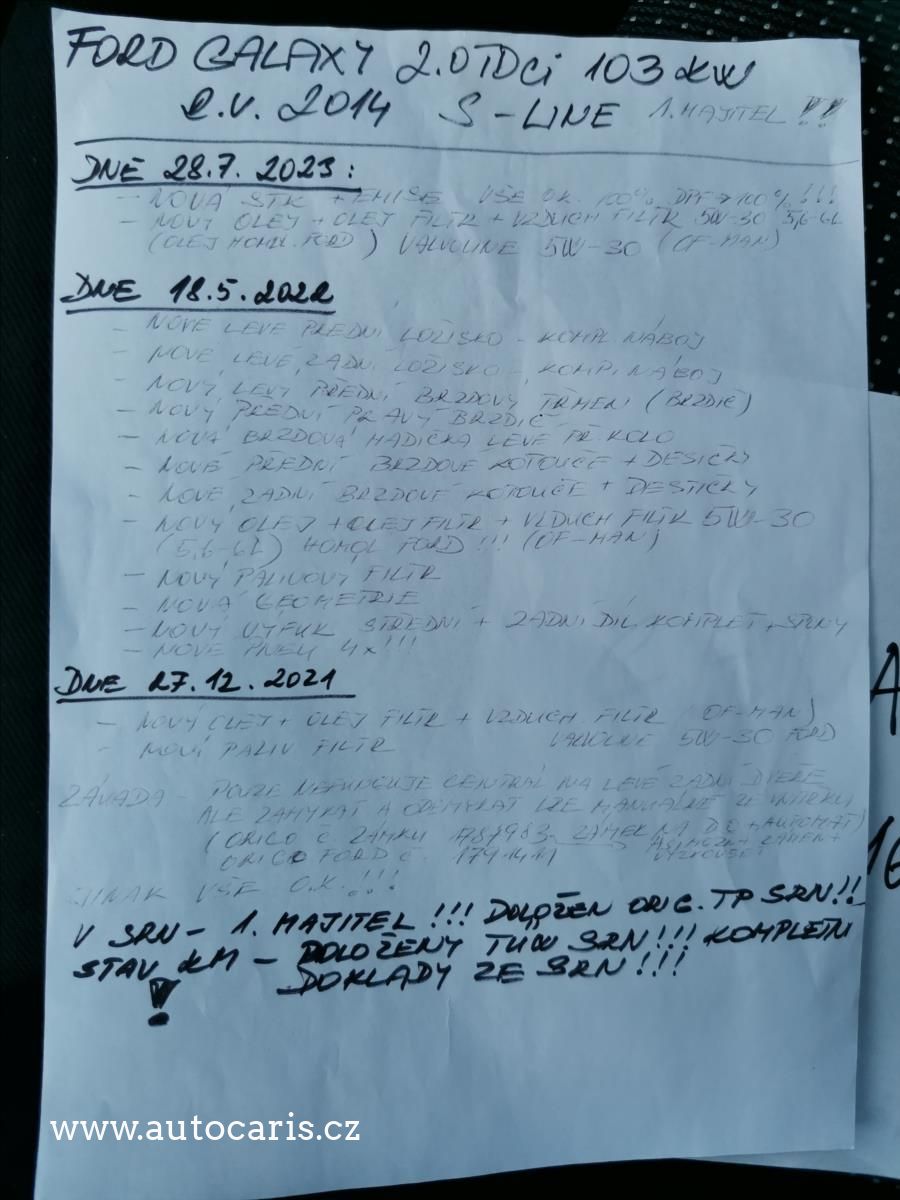 FORD GALAXY 2.0TDCi 103 kW
R.V. 2014 S-LINE 1. MAJITEL !!
DNE 28.7. 2023:
- NOVÁ STK + EMISE VŠE OK. 100% DPF → 100% !!!
- NOVÝ OLEJ + OLEJ FILTR + VZDUCH FILTR 5W-30 5,6-6L
(OLEJ HOMOL. FORD) VALVOLINE 5W-30 (OF-MAN)
DNE 18.5.2022
- NOVÉ LEVÉ PŘEDNÍ LOŽISKO - KOMPL. NÁBOJ
- NOVÉ LEVÉ ZADNÍ LOŽISKO - KOMPL. NÁBOJ
- NOVÝ LEVÝ PŘEDNÍ BRZDOVÝ TŘMEN (BRZDIČ)
- NOVÝ PŘEDNÍ PRAVÝ BRZDIČ
- NOVÁ BRZDOVÁ HADIČKA LEVÉ PŘ. KOLO
- NOVÉ PŘEDNÍ BRZDOVÉ KOTOUČE + DESIČKY
- NOVÉ ZADNÍ BRZDOVÉ KOTOUČE + DESTIČKY
- NOVÝ OLEJ + OLEJ FILTR + VZDUCH FILTR 5W-30
(5,6-6L) HOMOL FORD !!! (OF-MAN)
- NOVÝ PALIVOVÝ FILTR
- NOVÁ GEOMETRIE
- NOVÝ VÝFUK STŘEDNÍ + ZADNÍ DÍL KOMPLET, SPONY
- NOVÉ PNEU 4x!!!
DNE 27.12.2021
- NOVÝ OLEJ + OLEJ FILTR + VZDUCH. FILTR (OF-MAN)
- NOVÝ PALIV FILTR VALVOLINE 5W-30 FORD
ZÁVADA - POUZE NEFUNGUJE CENTRÁL NA LEVÉ ZADNÍ DVEŘE
ALE ZAMYKAT A ODEMYKAT LZE MANUÁLNĚ ZE VNITŘKU
(ORIGO Č. ZÁMKU 1784983 ZÁMEK NA DO + AUTOMAT)
ORIGO FORD Č. 1791411 VYZKOUŠET
JINAK VŠE O.K. !!!
V SRN - 1. MAJITEL !!! DOLOŽEN ORIG. TP SRN!!
STAV KM - DOLOŽENY TUV SRN!!! KOMPLETNÍ
! DOKLADY ZE SRN!!!
A
16
www.autocaris.cz